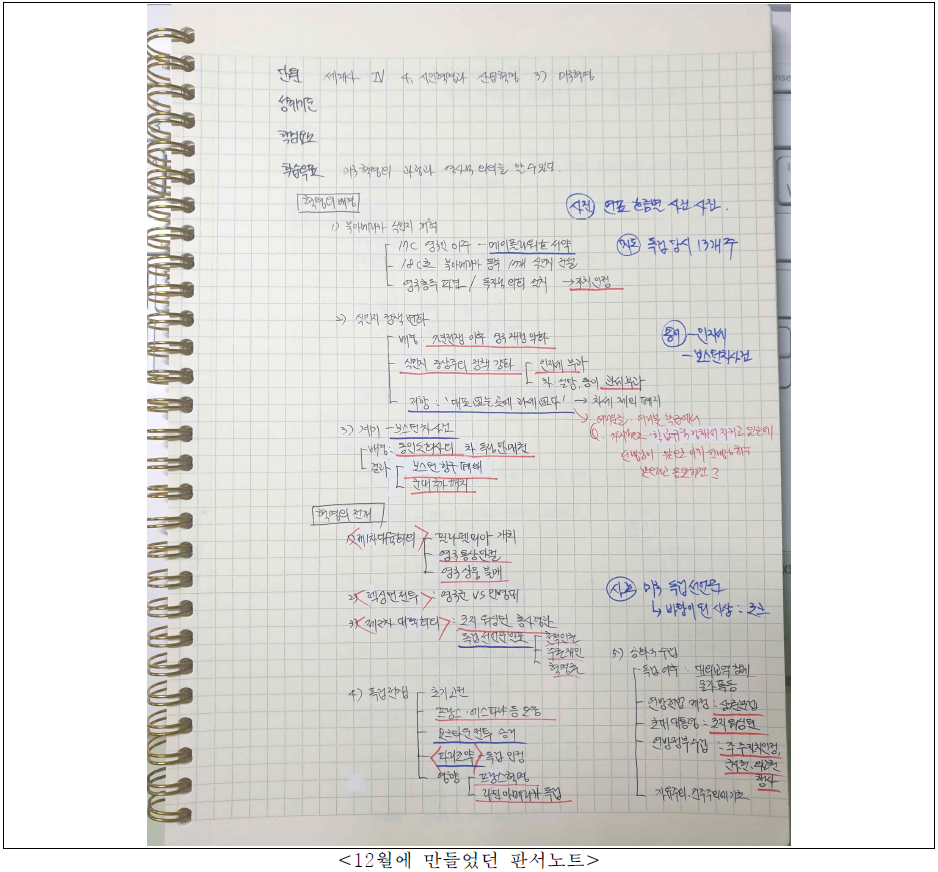 단원 세계사 IV 4. 시민혁명과 산업혁명 3) 미국혁명
성취기준
학습요소
학습목표 미국 혁명의 과정과 역사적 의의를 알 수 있다.
혁명의 배경
사진 연표 흐름면 사건 사진.
1) 북아메리카 식민지 개척
17C 영국인 이주 - 메이플라워호 서약
지도 독립 당시 13개 주
18C초 북아메리카 동부 13개 식민지 건설
영국총독 파견 / 독자적 의회 설치 → 자치 인정
2) 식민지 정책 변화
배경 7년전쟁 이후 영국 재정 악화
용어 - 인지세
- 보스턴차사건
식민지 중상주의 정책 강화
인지세 부과
차, 설탕, 종이 관세 부과
저항 : '대표 없는 곳에 과세 없다' → 차세 제외 폐지
3) 계기 - 보스턴차사건
Q.
배경 : 동인도회사의 차 독점 판매권
결과
보스턴 항구 폐쇄
군대 추가 배치
혁명의 전개
1) 제1차 대륙회의
필라델피아 개최
영국 통상 단절
영국 상품 불매
2) 렉싱턴 전투 : 영국군 VS 민병대
사료 미국 독립 선언문
↳ 바탕이 된 사상 : 로크
3) 제2차 대륙회의 : 조지 워싱턴 총사령관
독립 선언문 발표
주권재민
혁명권
5) 공화국 수립
독립 이후 :
물가 폭등
4) 독립전쟁
초기 고전
연방헌법 제정 : 삼권분립
프랑스·에스파냐 등 도움
초대 대통령 : 조지 워싱턴
요크타운 전투 승리
연방정부 수립 : 주 자치 인정,
파리조약 - 독립 인정
행사
영향
프랑스 혁명
라틴 아메리카 독립
자유주의, 민주주의에 기초
<12월에 만들었던 판서노트>